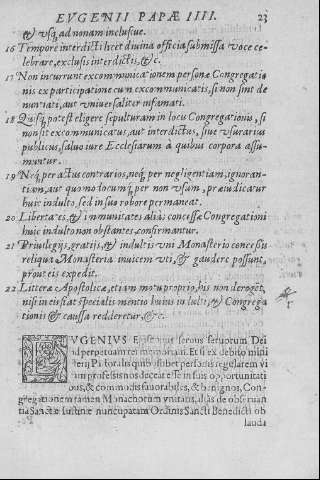 EVGENII PAPÆ IIII. 23
& vsq, ad nonam inclusiue.
16 Tempore interdicti licet diuina officia submissa voce ce-
lebrare, exclusis interdictis, &c.
17 Non incurrunt excommunicationem personæ Congregatio
nis ex participatione cum excommunicatis, si non sint de
nuntiati, aut vniuersaliter infamati.
18 Quisq, potest eligere sepulturam in locis Congregationis, si
non sit excommunicatus, aut interdictus, siue vsurarius
publicus, saluo iure Ecclesiarum à quibus corpora assu-
muntur.
19 Neq, per actus contrarios, neq, per negligentiam, ignoran-
tiam, aut quomodocumq, per non vsum, præiudicatur
huic indulto, sed in suo robore permaneat.
20 Libertates, & immunitates aliàs concessæ Congregationi
huic indulto non obstantes, confirmantur.
21 Priuilegijs, gratijs, & indultis vni Monasterio concessis
reliqua Monasteria inuicem vti, & gaudere possunt,
prout eis expedit.
22 Litteræ Apostolicæ, etiam motu proprio, his non derogēt,
nisi in eis fiat specialis mentio huius indulti, & Congrega
tionis & caussa redderetur, &c.
EVGENIUS Episcopus seruus seruorum Dei
ad perpetuam rei memoriam. Et si ex debito mini
sterij Pastoralis quibuslibet personis regularem vi
tam professis nos deceat esse in suis opportunitati
bus, & commodis fauorabiles, & benignos, Con-
gregationem tamen Monachorum vnitatis, aliàs de obseruan
tia Sanctæ Iustinæ nuncupatam Ordinis Sancti Benedicti ob
lauda